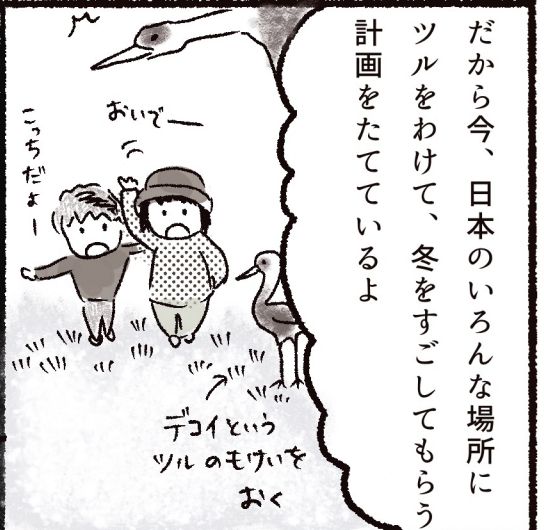 だから今、日本のいろんな場所に
ツルをわけて、冬をすごしてもらう
計画をたてているよ
おいでー
こっちだよー
デコイという
ツルのもけいを
おく